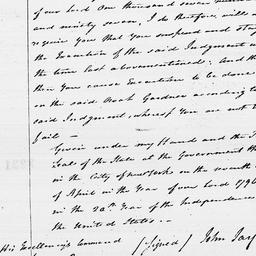 of our Lord One thousand seven hundred
and ninety seven, I do therefore, will and
require You that You suspend and stay
the Execution of the said Judgment u
the time last abovementioned; And th
then You cause Execution to be done
on the said Noah Gardner according to
said Judgment, whereof You are not to
fail —
Given under my Hand and the P
Seal of the State at the Government H
in the City of New York on the seventh
of April in the Year of our Lord 1796
in the 20th Year of the Independence
the United States. —
His Excellency's Command
(Signed) John Jay